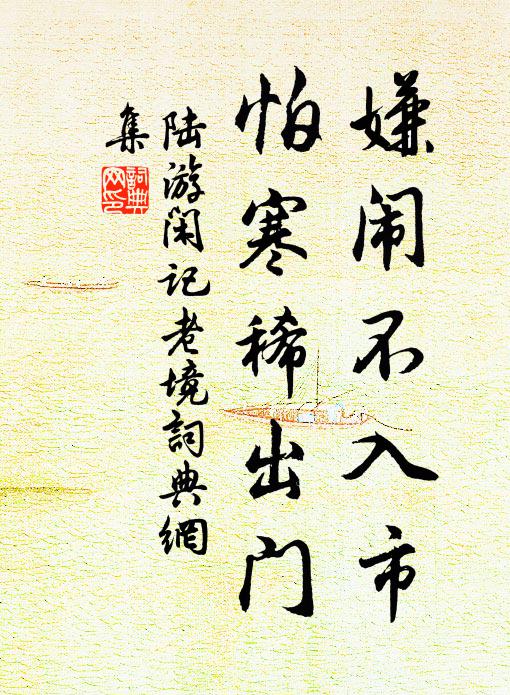 嫌闹不入市
怕寒稀出门
陆游闲记老境詞典網
集
詞典
网印